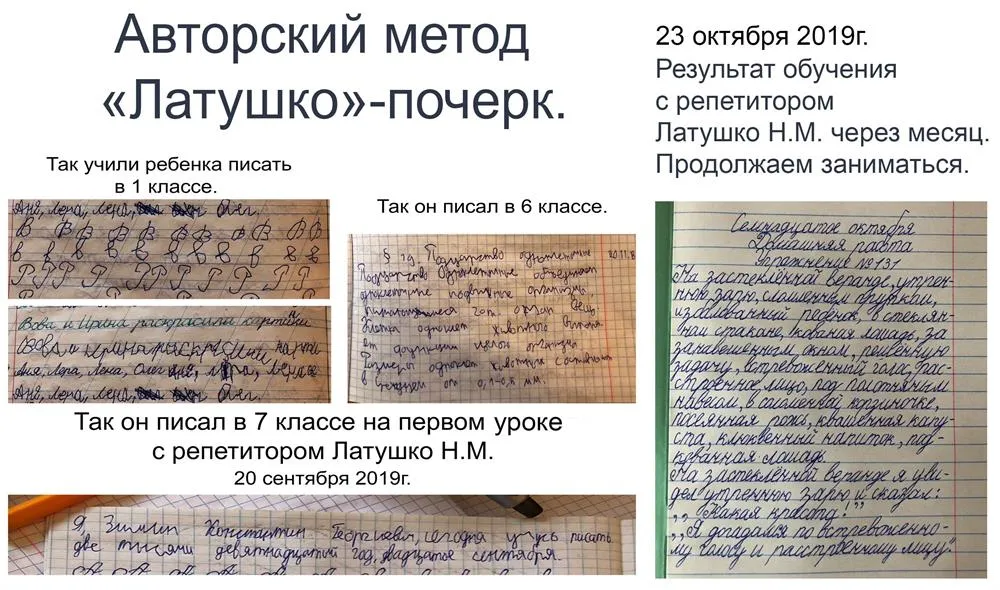 Авторский метод
«Латушко»-почерк.
23 октября 2019г.
Результат обучения
с репетитором
Латушко Н.М. через месяц.
Продолжаем заниматься.
Так учили ребенка писать
в 1 классе.
Аня, Лера, Лена, Олег.
В В В В В В В В В
в в в в в в в в
Р Р Р Р Р Р Р Р Р
Вова и Ирина раскрасили картинки
Вова и Ирина раскрасили
Аня, Лера, Лена, Олег
Аня, Лера, Лена, Олег.
Так он писал в 6 классе.
§ 19. Подцарство одноклеточные
Подцарство Одноклеточные объединяет
одноклеточные организмы
Клетка одноклет. животного
от функции целого организма
Размеры одноклет. животных
в среднем от 0,1-0,5 мм.
Так он писал в 7 классе на первом уроке
с репетитором Латушко Н.М.
20 сентября 2019г.
Я, Зимин Константин Георгиевич, сегодня учусь писать
две тысячи девятнадцатый год, двадцатое сентября.
Семнадцатое октября
Домашняя работа
Упражнение №131
На застеклённой веранде, утрен-
нюю зарю, с
избалованный ребёнок, в стеклян-
ном стакане, кованая лошадь, за
занавешенным окном, решённую
задачу, встревоженный голос, рас-
строенное лицо, под
навесом, в соломенной корзиночке,
посеянная рожь, квашенная капу-
ста, клюквенный напиток, под-
кованная лошадь.
На застеклённой веранде я уви-
дел утреннюю зарю и сказал:
,,Какая красота!"
,,Я догадался по встревоженно-
му голосу и расстроенному лицу".